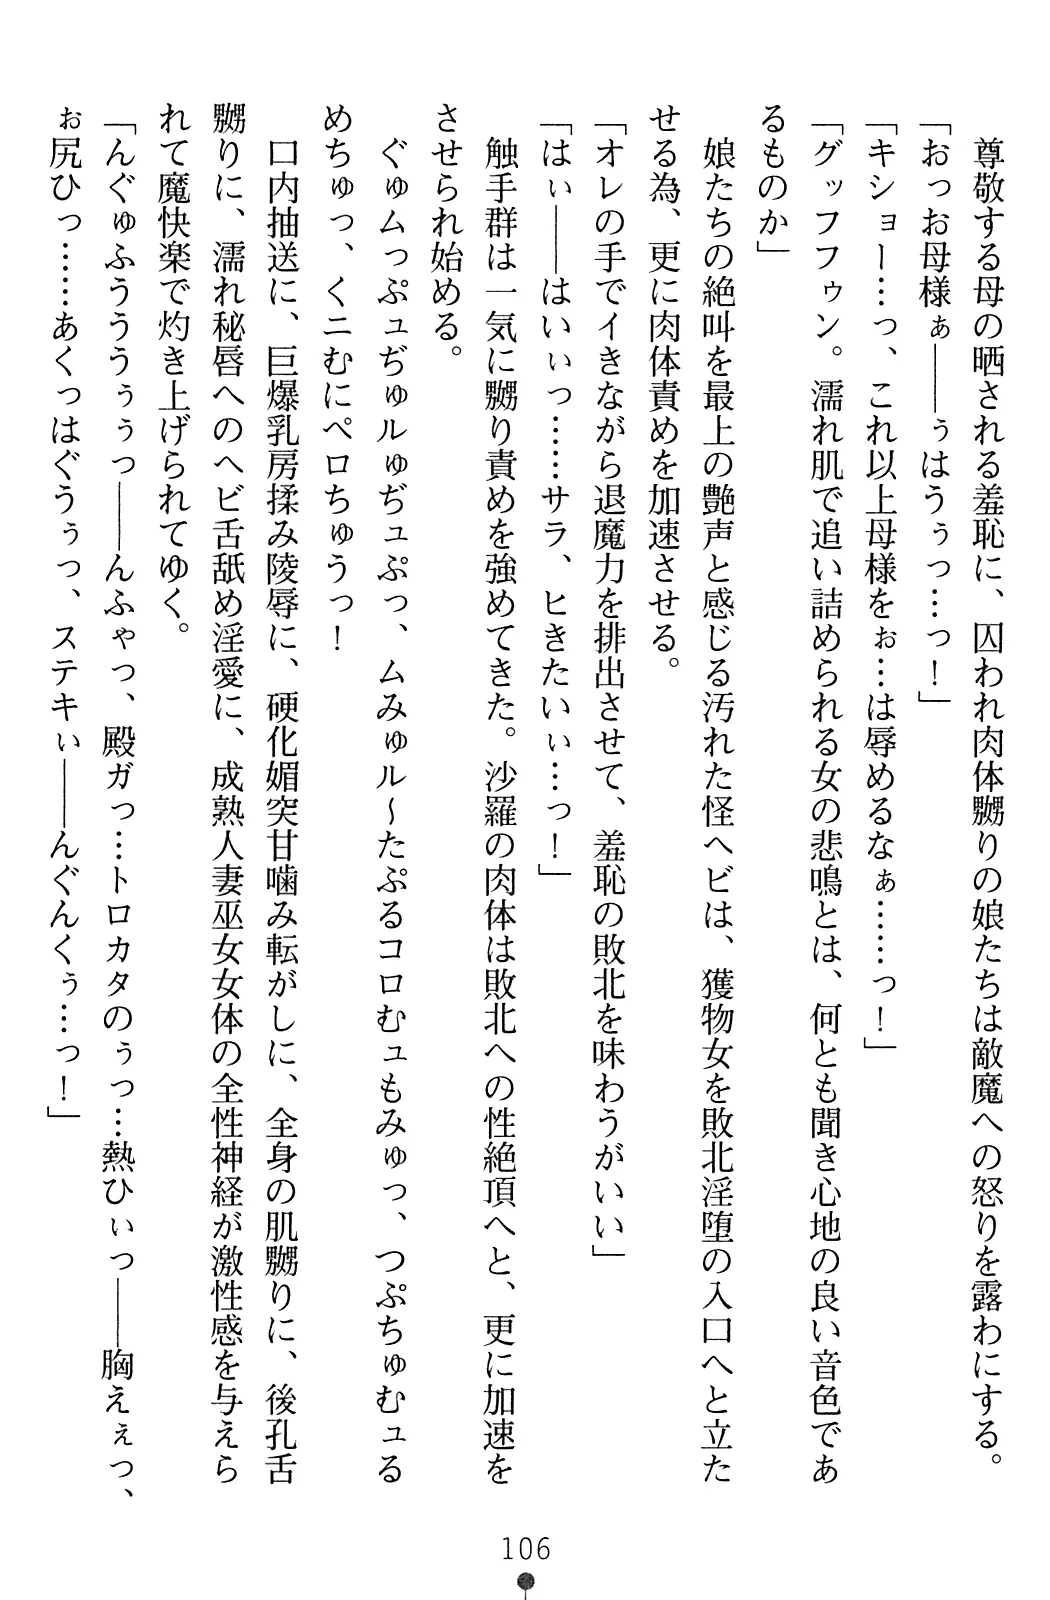 尊敬する母の晒される羞恥に、囚われ肉体嬲りの娘たちは敵魔への怒りを露わにする。
「おっお母様ぁ――ぅはうぅっ…っ！」
「キショー…っ、これ以上母様をぉ…は辱めるなぁ……っ！」
「グッフフゥン。濡れ肌で追い詰められる女の悲鳴とは、何とも聞き心地の良い音色であ
るものか」
娘たちの絶叫を最上の艶声と感じる汚れた怪ヘビは、獲物女を敗北淫堕の入口へと立た
せる為、更に肉体責めを加速させる。
「オレの手でイきながら退魔力を排出させて、羞恥の敗北を味わうがいい」
「はぃ――はいぃっ……サラ、ヒきたいぃ…っ！」
触手群は一気に嬲り責めを強めてきた。沙羅の肉体は敗北への性絶頂へと、更に加速を
させられ始める。
ぐゅムっぷュぢゅルゅぢュぷっ、ムみゅル～たぷるコロむュもみゅっ、つぷちゅむュる
めちゅっ、くニむにペロちゅうっ！
口内抽送に、巨爆乳房揉み陵辱に、硬化媚突甘噛み転がしに、全身の肌嬲りに、後孔舌
嬲りに、濡れ秘唇へのヘビ舌舐め淫愛に、成熟人妻巫女女体の全性神経が激性感を与えら
れて魔快楽で灼き上げられてゆく。
「んぐゅふうううぅぅっ――んふゃっ、殿ガっ…トロカタのぅっ…熱ひぃっ――胸えぇっ、
ぉ尻ひっ……あくっはぐうぅっ、ステキぃ――んぐんくぅ…っ！」
106